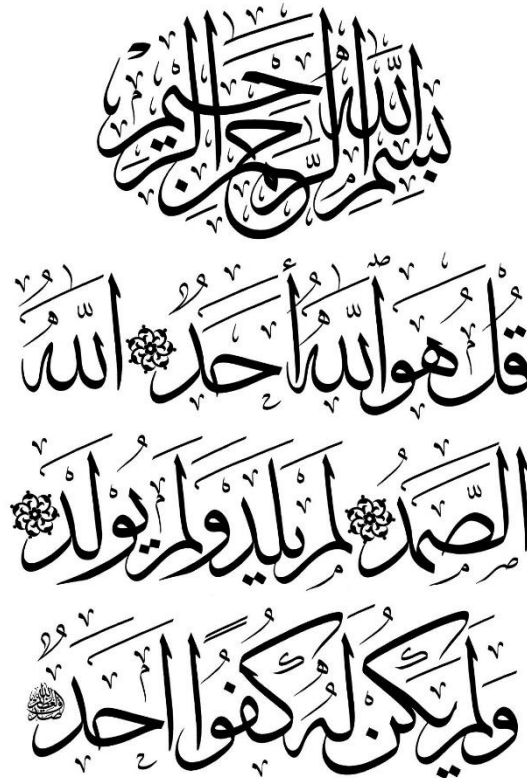 بِسْمِ اللّٰهِ الرَّحْمٰنِ الرَّحِيْمِ
قُلْ هُوَ اللّٰهُ أَحَدٌ ۞ اللّٰهُ
الصَّمَدُ ۞ لَمْ يَلِدْ وَلَمْ يُولَدْ ۞
وَلَمْ يَكُنْ لَهُ كُفُوًا اَحَدٌ